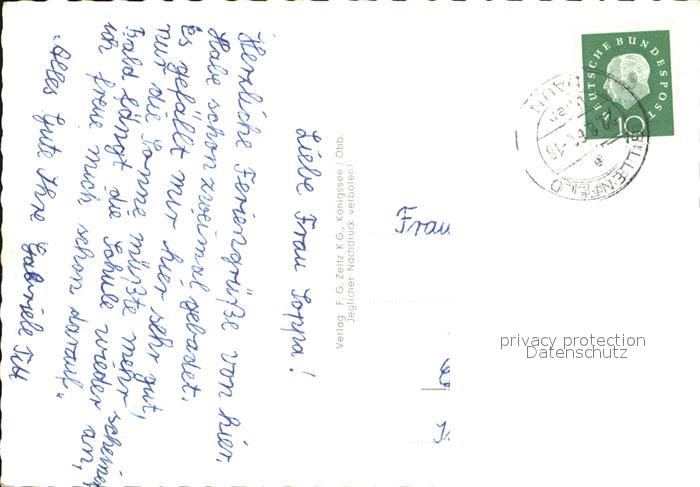 Liebe Frau Soppa!
Herzliche Feriengrüße von hier.
Habe schon zweimal gebadet.
Es gefällt mir hier sehr gut,
nur die Sonne müßte mehr scheinen
Bald fängt die Schule wieder an,
ich freue mich schon darauf.
Alles Gute Ihre Gabriele
Verlag F. G. Zeitz K G., Königssee / Obb.
Jeglicher Nachdruck verboten!
Frau
DEUTSCHE BUNDESPOST
10
privacy protection
Datenschutz